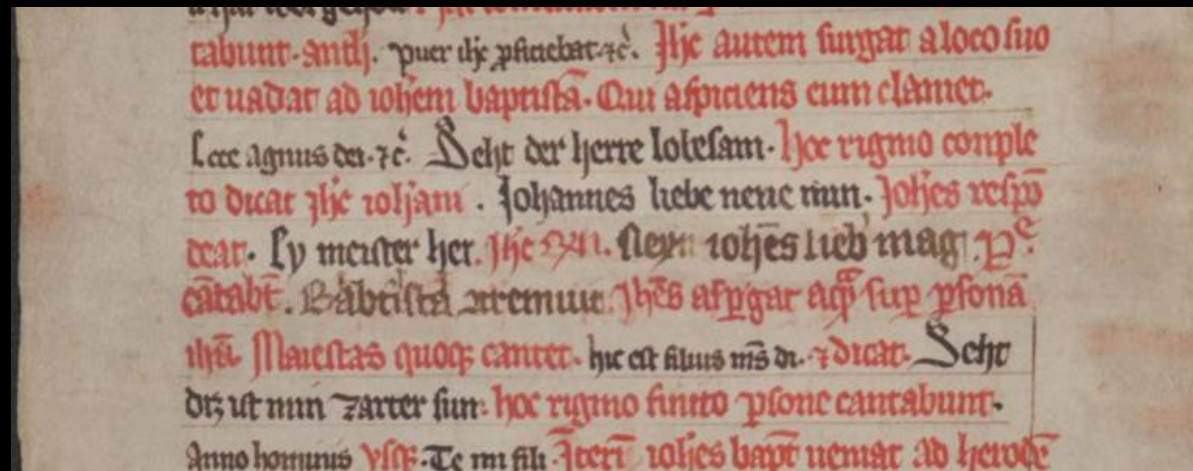 tabunt. anth. puer ihc ꝓficiebat ⁊c̃. Ihc autem surgat a loco suo
et uadat ad ioh̄em baptistā. Qui aspiciens eum clamet.
Ecce agnus dei. ⁊c̃. Seht der herre lobesam. hoc rigmo conple
to dicat ihc ioh̄anni. Johannes liebe neue min. Joh̄es respō
deat. Ey meister her. Ihc Neyn ioh̄es lieb mag. Pᵉ.
cātabt̄. Babtista ↄtremuit. Ih̄es asp̱gat aquā sup̱ p̱sonā
ihū. Maiestas quoqꝫ cantet. hic est filius m̄s di. ⁊ dicat. Seht
dꝫ ist min zarter sun. hoc rigmo finito p̱sone cantabunt.
Anno hominis vsqꝫ. Te mi fili. Iterū ioh̄es bapt̄ ueniat ad herodē